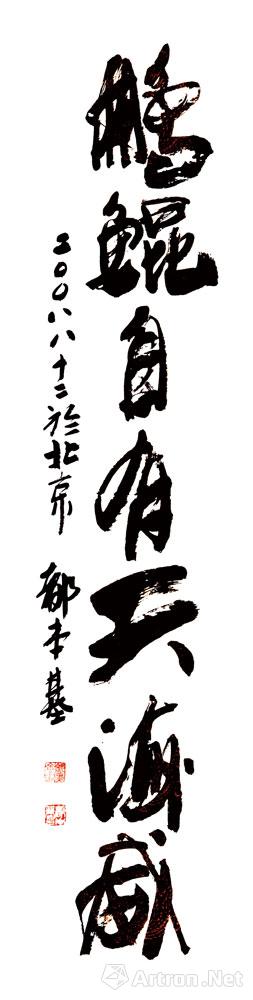 鵬鯤自有天海威
二〇〇八八十二於北京 都本基
Artron.Net